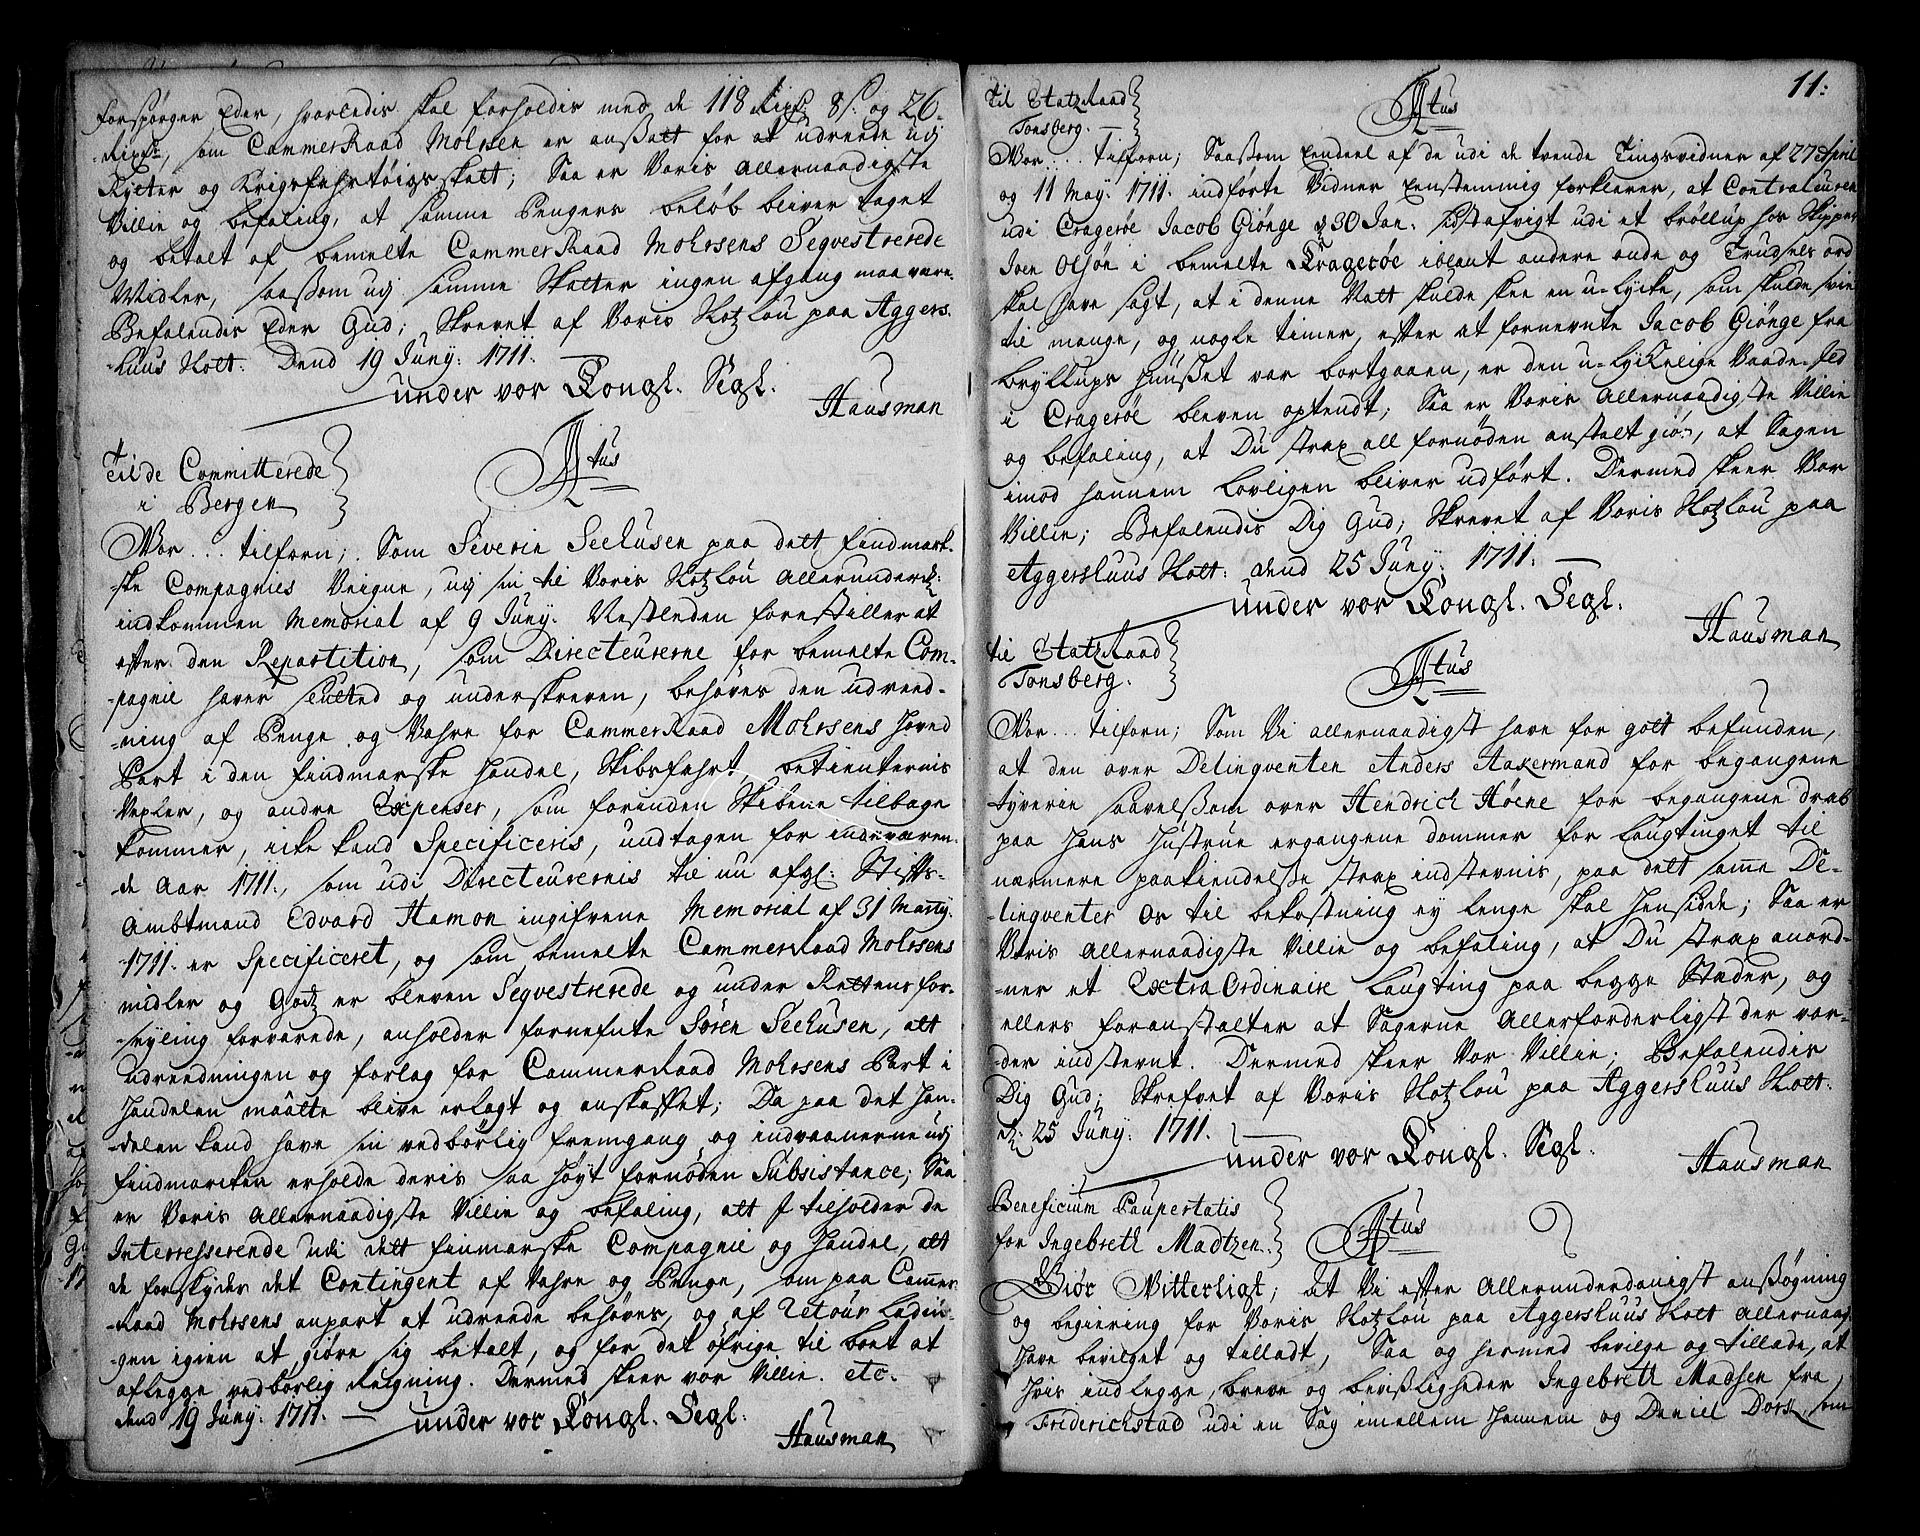 forspørger Eder, hvorledis skal forholdis med de 118 Rixdr 8 s. og 26
Rixdr, som CammerRaad Mohrsen er ansatt for at udreede udj
Rytter og Krigsfahrtøigs skatt; Saa er Voris Allernaadigste
Villie og befaling, at samme Pengers beløb bliver taget
og betalt af bemelte CammerRaad Mohrsens Seqvestrerede
Midler, saassom udj samme Skatter ingen afgang maa være.
Befalendis Eder Gud; Skrevet af Voris Slotzlou paa Aggers-
huus Slott. Dend 19 Junÿ: 1711.
under vor Kongl. Segl.
Hausman
Til de Committerede
i Bergen
F4tus
Vor... tilforn; Som Severin Seehusen paa dett findmark-
ske Compagnies Veigne, udj sin til Voris Slotzlou Allerunderd:
indkommen Memorial af 9 Junÿ. Nestleden forestiller at
efter den Repartition, som Directeurerne for bemelte Com-
pagnie haver slutted og underskreven, behøves den udreed-
ning af Penge og Vahre for CammerRaad Mohrsens hoved
Part i den findmarske handel, Skibsfahrt, betienternis
Vexler, og andre Expenser, som forinden Skibene tilbage
kommer, icke kand Specificeris, undtagen for indeværen-
de Aar 1711, som udi Directeurernis til nu afgl: Stifts-
Ambtmand Edvard Hamon ingifvene Memorial af 31 Martÿ.
1711. er Specificeret, og som bemelte CammerRaad Mohrsens
midler og Godtz er bleven Seqvestrerede og under Rettens for-
seyling forvarede, anholder fornefnte Søren Seehusen, att
udreedningen og forlag for CammerRaad Mohrsens Part i
handelen maatte blive erlagt og anskaffet; Da paa det han-
delen kand have sin vedbørlig fremgang og indvaanerne udj
findmarcken erholde deris saa høyt fornøden Subsistance; Saa
er Voris Allernaadigste Villie og befaling, att I tilholder de
Interresserende udi dett finmarske Compagnie og handel, att
de forskyder det Contingent af Vahre og Penge, som paa Cammer-
Raad Mohrsens anpart at udreede behøves, og af Retour Ladin-
gen igien at giøre sig betalt, og for det øfrige til boet at
aflegge vedbørlig Reigning. Dermed skeer vor Villie. etc.
dend 19 Junÿ: 1711.
under vor Kongl. Segl.
Hausman
11:
Til StatzRaad
Tonsberg.
F4tus
Vor... tilforn; Saasom Eendeel af de udi de tvende Tingsvidner af 27 April
og 11 May. 1711. indførte Vidner eenstemmig forklarer, at Contraleuren
udi Cragerøe Jacob Giønge d 30 Jan. sidstafvigt udi et brøllup hos Skipper
Joen Olsøn i bemelte Kragerøe iblant andre onde og Trudsels ord
skal have sagt, at i denne Natt skulde skee en u-lycke, som skulde svie
til mange, og nogle timer, efter at fornevnte Jacob Giønge fra
bryllups huuset var bortgaaen, er den u-lyckelige Vaade-Ild
i Cragerøe bleven optendt; Saa er Voris Allernaadigste Villie
og befaling, at Du strax all fornøden anstalt giør, at Sagen
imod hannem Lovligen bliver udført. Dermed skeer Vor
Villie; Befalendis Dig Gud; Skrevet af Voris Slotzlou paa
Aggershuus Slott: dend 25 Junÿ. 1711.
under vor Kongl. Segl.
Hausman
til StatzRaad
Tonsberg.
F4tus
Vor... tilforn; Som Vi allernaadigst have for gott befunden,
at den over Delinqventen Anders Aakermand for begangene
tyverie saavelssom over Hendrich Høene for begangene drab
paa hans hustrue ergangene dommer for Laugtinget til
nærmere paakiendelsse strax indstevnis, paa dett samme De-
linqventer os til bekostning ey lenge skal hensidde; Saa er
Voris Allernaadigste Villie og befaling, at Du strax anord-
ner et Extra Ordinaire Laugting paa begge Stæder, og
ellers foranstalter at Sagerne Allerforderligst der vor-
der indstevnt. Dermed skeer Vor Villie; Befalendis
Dig Gud; Skrefvet af Voris Slotzlou paa Aggershuus Slott:
d: 25 Junÿ: 1711.
under vor Kongl. Segl.
Hausman
Beneficium Paupertatis
for Ingebreth Madtzen.
F4tus
Giør Vitterligt; At Vi efter Allerunderdanigst ansøgning
og begiering for Voris Slotzlou paa Aggershuus Slott Allernaadi
have bevilget og tilladt, Saa og hermed bevilge og tillade, at
hvis indlegge, breve og bevissligheder Ingebreth Madsen fra
Friderichstad udi en Sag imellem hannem og Deniel Dorst, som